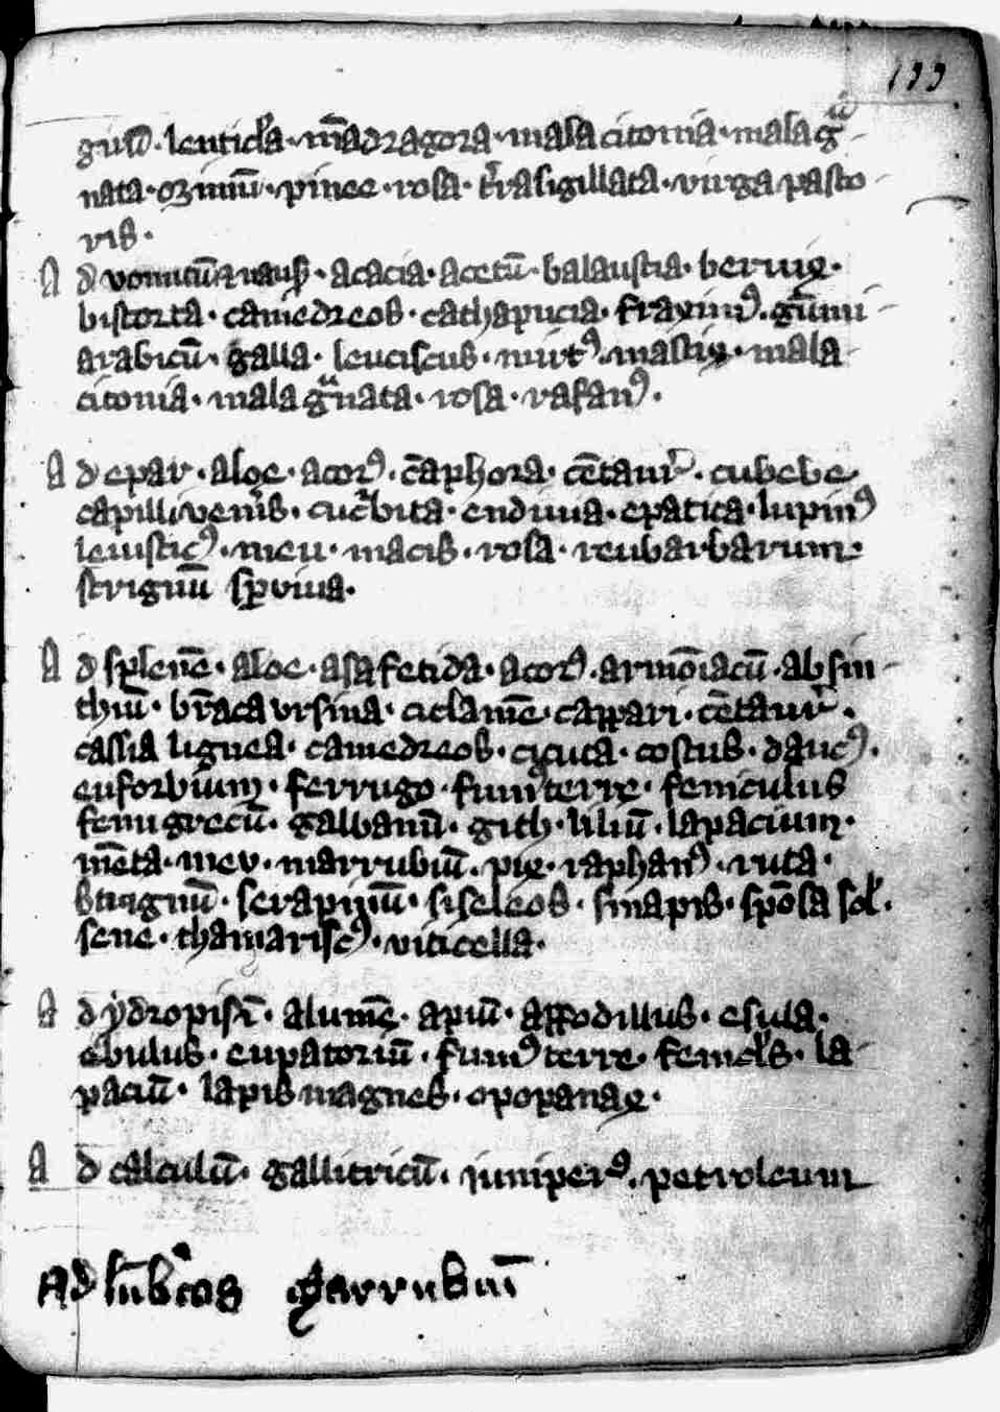 133
lenticla · mādragora · mala citonia · mala gͣ-
nata · ozimū · pinee · rosa · t̄ra sigillata · virga pasto-
ris ·
Ad vomitū · acacia · acetū · balaustia · beruix ·
bistorta · camedreos · cathapucia · fraxinꝰ · gūmi
arabicū · galla · leuciscus · mirtꝰ · mastix · mala
citonia · mala gͣnata · rosa · rafanꝰ ·
Ad epar · aloe · acorꝰ · cāphora · cētaur̄ · cubebe
capilli ven̄is · cuc̄bita · endiuia · epatica · lupinꝰ
leuisticꝰ · meu · macis · rosa · reubarbarum
strignū
Ad splenē · aloe · asa fetida · acorꝰ · armōiacū · absin-
thiū · brāca vrsina · ciclamē · cappari · cētaur̄ ·
cassia lignea · camedreos · cicuta · costus · daucꝰ ·
euforbium · ferrugo · fumꝰ terre · feniculus
fenugrecū · galbanū · gith · liliū · lapacium ·
mēta · meu · marrubiū · pix · raphanꝰ · ruta ·
serapinū · siseleos · sinapis · spōsa sol̄ ·
sene · thamariscꝰ · viticella ·
Ad ydropisī · alumē · apiū · affodillus · esula ·
ebulus · eupatoriū · fumꝰ terre · feniclꝰs · la-
paciū · lapis magnes · opopanax ·
Ad calculū · gallitricū · iuniperꝰ · petroleum
Ad lūbͥcos marrubiū